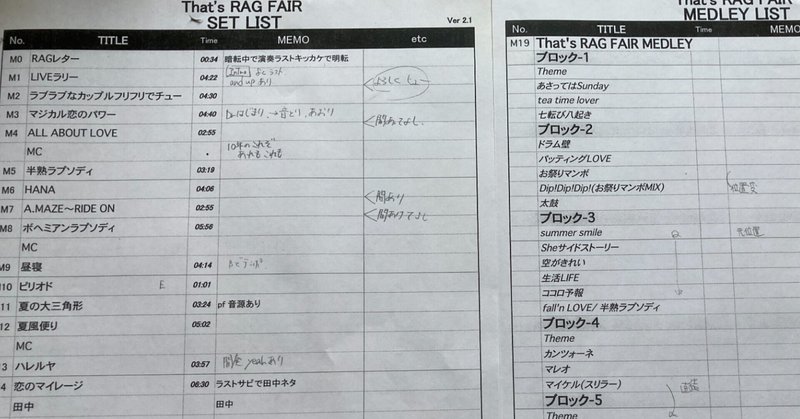 That's RAG FAIR
SET LIST
Ver 2.1
No. TITLE Time MEMO etc
M0 RAGレター 00:34 暗転中で演奏ラストキッカケで明転
M1 LIVEラリー 04:22 [Intro]
and up あり
M2 ラブラブなカップルフリフリでチュー 04:30
M3 マジカル恋のパワー 04:40 →音とり、あおり
M4 ALL ABOUT LOVE 02:55
MC 10年のこれぞ
あれもこれも
M5 半熟ラプソディ 03:19
M6 HANA 04:06
間あり
M7 A.MAZE〜RIDE ON 02:55
M8 ボヘミアンラプソディ 05:56
MC
M9 昼寝 04:14
10 ピリオド E 01:01
11 夏の大三角形 03:24 pf 音源あり
12 夏風便り 05:02
MC
3 ハレルヤ 03:57 yeahあり
4 恋のマイレージ 06:30 ラストサビで田中ネタ
田中 田中
That's RAG FAIR
MEDLEY LIST
No. TITLE Time MEMO
M19 That's RAG FAIR MEDLEY
ブロック-1
Theme
あさってはSunday
tea time lover
七転び八起き
ブロック-2
ドラム壁
バッティングLOVE
お祭りマンボ
Dip!Dip!Dip!(お祭りマンボMIX) 位置変
太鼓
ブロック-3
summer smile 元位置
Sheサイドストーリー
空がきれい
生活LIFE
ココロ予報
fall'n LOVE/ 半熟ラプソディ
ブロック-4
Theme
カンツォーネ
マレオ
マイケル(スリラー)
ブロック-5
Theme